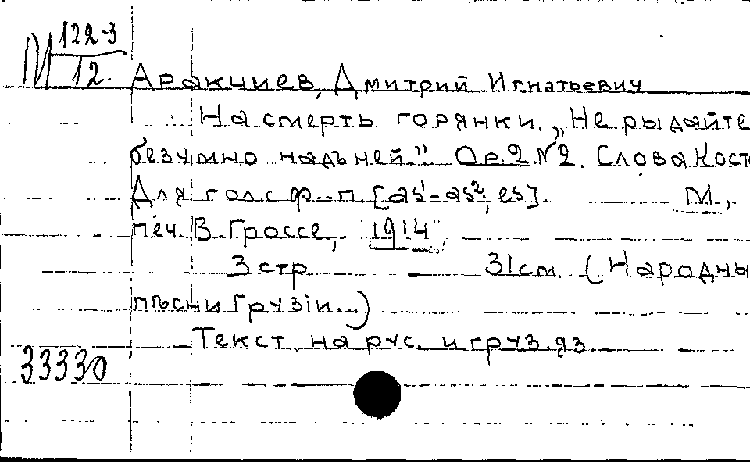 М 122-3
12.
Аракчиев, Дмитрий Игнатьевич
На смерть горянки. „Не рыдайте
безумно надъ ней" Op.2 №2. Слова Кост
Для голс ф-п [as¹-as², es].   М.,
печ. В. Гроссе, 1914.
3 стр   31см. (Народны
пѣсни Грузіи...)
Текст на рус. и груз. яз.
33330